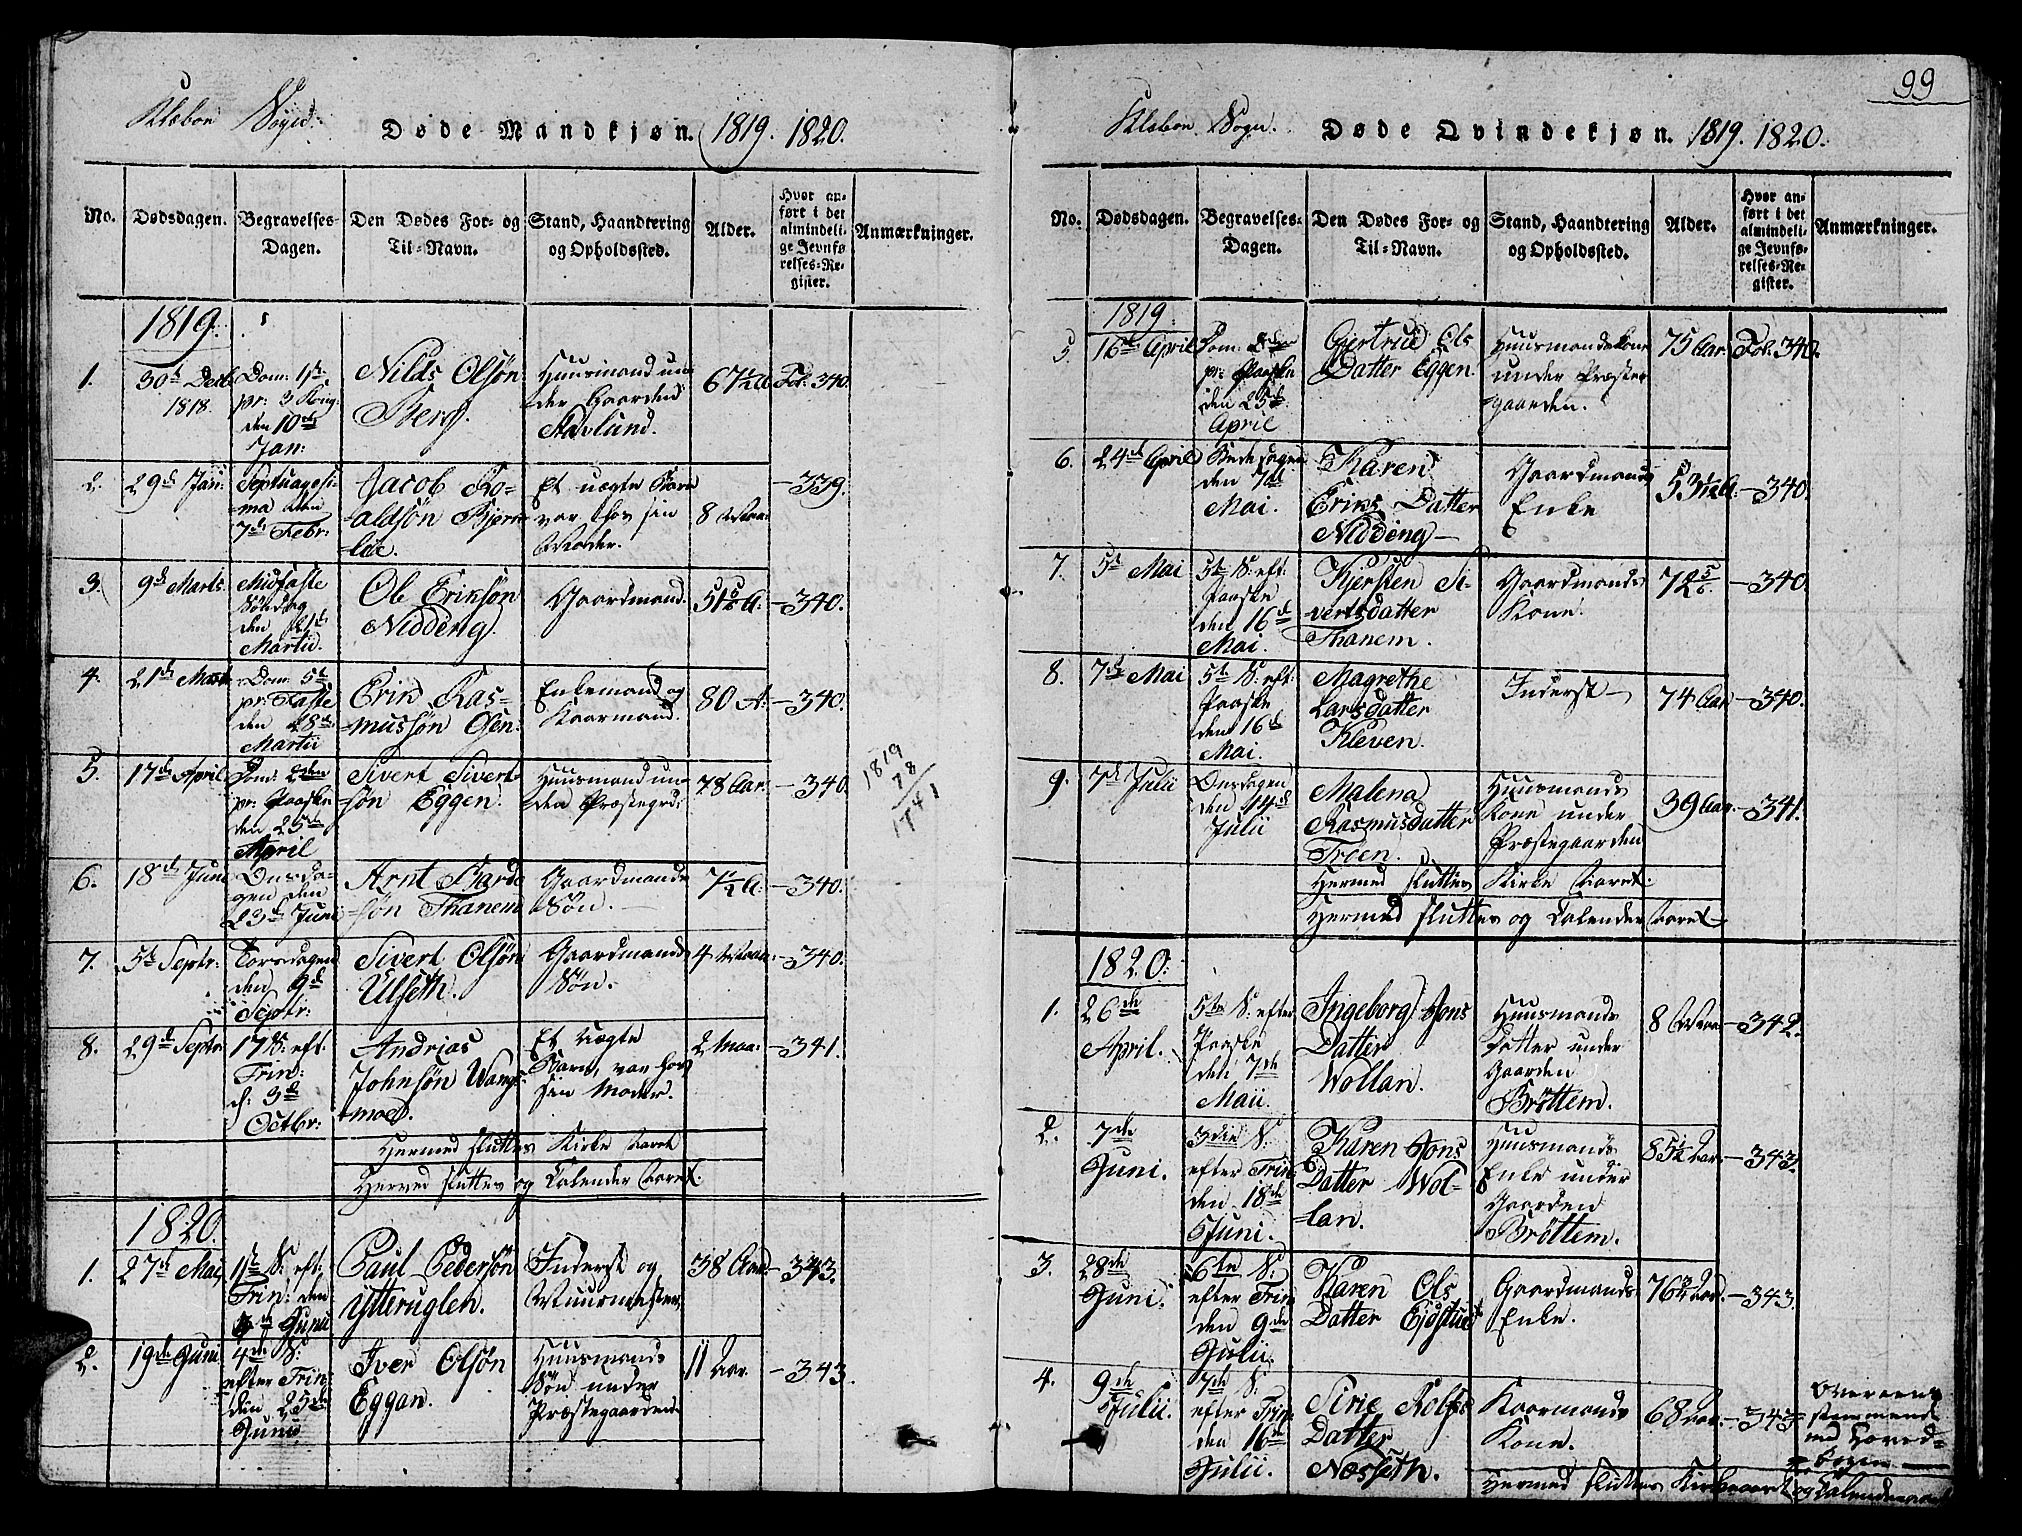 99
Klæboe Sogn.
Døde Mandkjøn. 1819. 1820.
No.
Dødsdagen.
Begravelses-
Dagen.
Den Dødes For- og
Til-Navn.
Stand, Haandtering
og Opholdssted.
Alder.
Hvor an-
ført i det
almindeli-
ge Jevnfø-
relses-Re-
gister.
Anmærkninger.
1819.
1.
30te Decb.
1818.
Dom: 1ste
pr: 3 Kong:
den 10de
Jan:
Nils Olsön
Berg.
Huusmand un-
der Gaarden
67½ A.
Fol. 340.
2.
29de Jan:
Septuagesi-
ma den
7de Febr:
Jacob Ro-
aldsön Bjerk-
lie.
Et uægte Barn
var hos sin
Moder.
8
-339.
3.
9de Marts.
Midfaste
Söndag
den 21de
Martii.
Ole Eriksön
Nideng.
Gaardmand.
-340.
4.
21de Marts
Dom: 5te
pr: Faste
den 28de
Martii
Erik Ras-
mussön Osen.
Enkemand og
Kaarmand.
80 A.
-340.
5.
17de April
Dom: 2den
pr: Paaske
den 25de
April
Sivert Sivert-
sön Eggen.
Huusmand un-
der Præstegrd:
78 Aar.
-340.
1819
78
1741
6.
18de Juni
Onsda-
gen den
23de Juni
Arnt Bard-
sön Thanem
Gaardmands
Sön.
-340.
7.
5te Septr:
Torsdagen
den 9de
Septr:
Sivert Olsön
Ulseth.
Gaardmands
Sön.
4
-340.
8.
29de Septr:
17 S. eft.
Trin:
d: 3de
Octbr:
Andrias
Johnsön Wangs-
moe.
Et uægte
Barn, var hos
sin Moder.
2 Maa:
-341.
Hermed sluttes Kirke Aaret
Herved sluttes og Calender Aaret.
1820.
1.
27de Mai,
1ste S. eft.
Trin: den
Junii
Paul Pedersön
Ytteruglen.
Inderst og
Muurmester,
38 Aar
-343.
2.
19de Juni
4de S:
efter Trin:
den 25de
Junii
Iver Olsön
Eggan.
Huusmands
Sön under
Præstegaarden.
11 Aar.
-343.
Klæboe Sogn.
Døde Qvindekjøn. 1819. 1820.
No.
Dødsdagen.
Begravelses-
Dagen.
Den Dødes For- og
Til-Navn.
Stand, Haandtering
og Opholdssted.
Alder.
Hvor an-
ført i det
almindeli-
ge Jevnfø-
relses-Re-
gister.
Anmærkninger.
1819
5.
16de April
Dom: 2den
pr: Paaske
den 25de
April
Gjertrud Ols
Datter Eggen.
Huusmandskone
under Præste-
gaarden.
75 Aar
Fol. 340.
6.
24de April
Bededagen
den 7de
Mai.
Karen
Eriks Datter
Niddeng
Gaardmands
Enke
-340.
7.
5te Mai
5te S: eft:
Paaske
den 16de
Mai.
Kjersten Si-
vertsdatter
Thanem.
Gaardmands
Kone.
-340.
8.
7de Mai
5te S: eft:
Paaske
den 16de
Mai.
Magrethe
Larsdatter
Kleven.
Inderst
74 Aar
-340.
9.
7de Julii
Onsdagen
den 14de
Julii
Malena
Rasmusdatter
Tröen.
Huusmands
Kone under
Præstegaarden
39 Aar.
-341.
Hermed sluttes Kirke Aaret.
Hermed sluttes og Calender Aaret
1820.
1.
26de
April.
5te S: efter
Paaske
den 7de
Maii.
Ingeborg Jons
Datter
Wollan.
Huusmands
Datter under
Gaarden
Bröttem.
8
-342.
2.
7de
Juni.
3die S:
efter Trin:
den 18de
Juni.
Karen Jons
Datter Wol-
lan.
Huusmands
Enke under
Gaarden
Bröttem.
-343.
3.
28de
Juni.
6te S:
efter Trin:
den 9de
Julii.
Karen Ols
Datter
Gaardmands
Enke.
-343.
4.
9de
Julii.
7de S:
efter Trin:
den 16de
Julii.
Sirie Rolfs
Datter
Næsseth.
Kaarmands
Kone.
68 Aar.
-343
Overeens-
stemmende
med Hoved-
bogen
Hermed sluttes Kirkeaaret og Calenderaaret